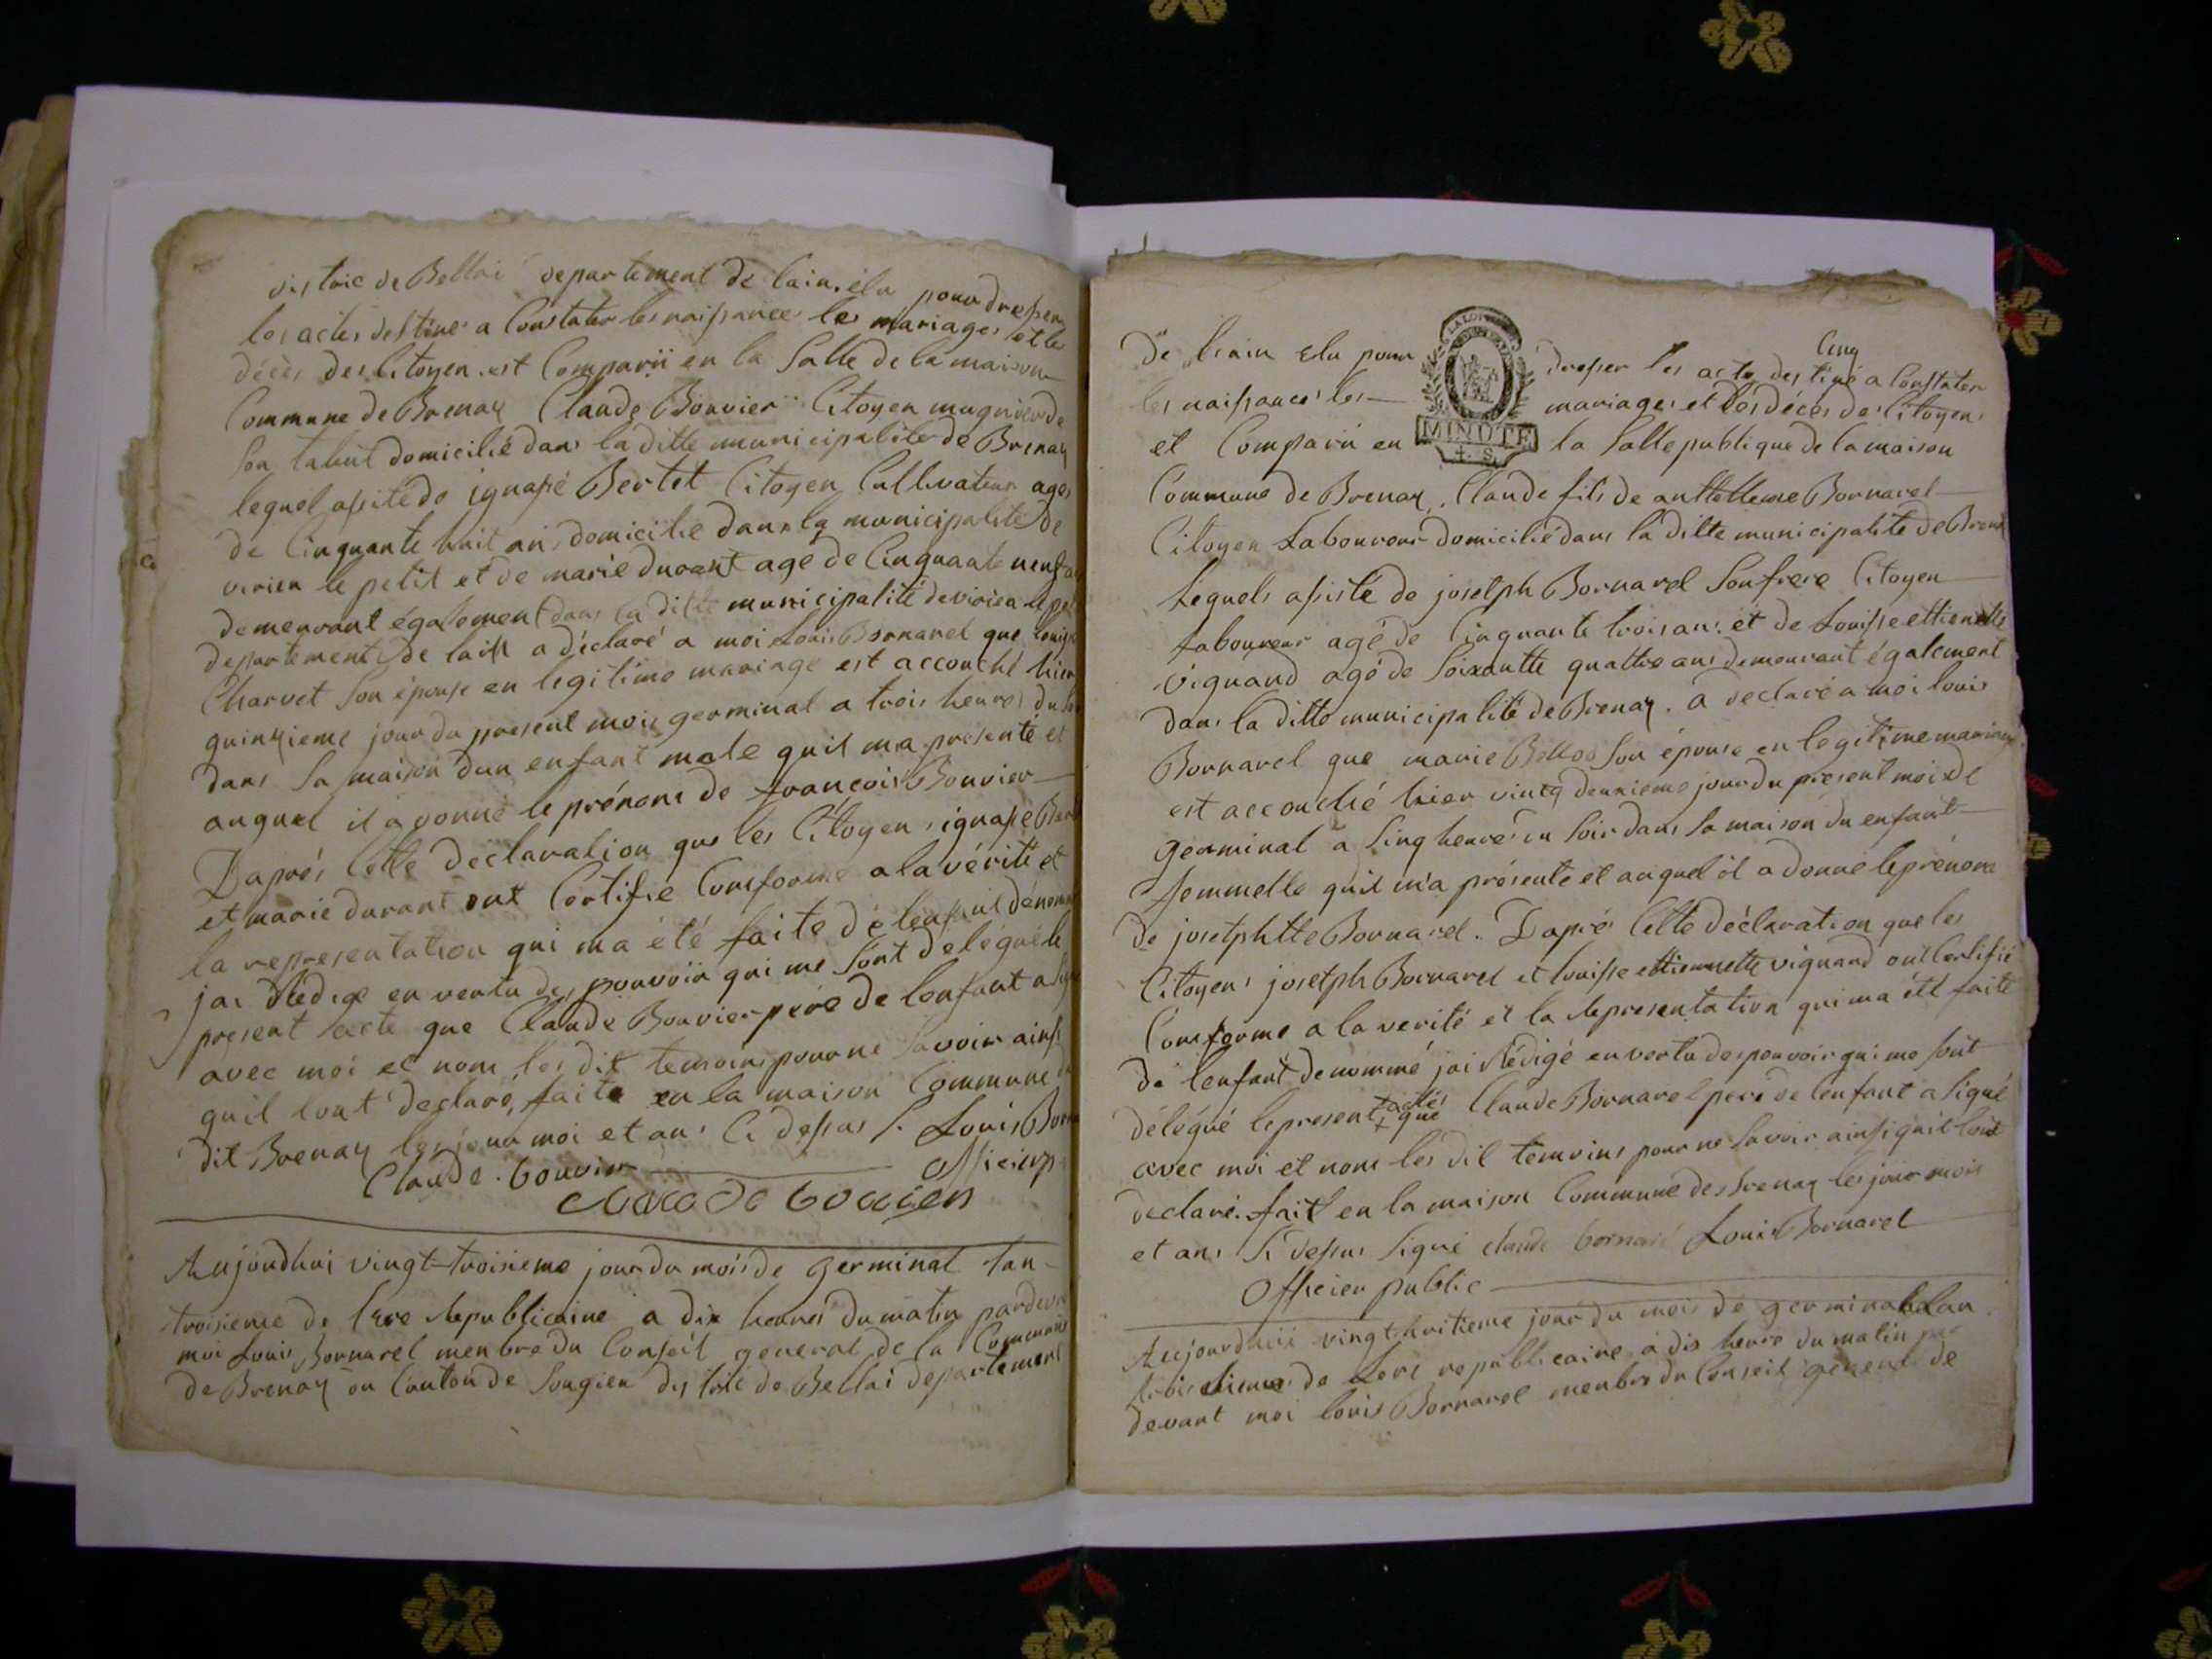 districe de Bellai departement de lain. élu pour dresser
les actes destine a Constater les naissance les mariages et les
décès des Citoyen. est Comparü en la Salle de la maison
Commune de Brenaz Claude Bouvier Citoyen mugnier de
Son domicilié dans la ditte municipalité de Brenaz
lequel assité de ignasse Bertet Citoyen Cultivateur ages
de Cinquante huit an domicilie dans la municipalite de
virieu le petit et de marie durant age de Cinquante neuf an
demeurant également dans la ditte municipalité de virieu le pet
departement de lain a déclaré a moi Louis Bornarel que louise
Charvet Son épouse en legitime mariage est accouché hier
quinzieme jour du present mois germinal a trois heures du
dans Sa maison dun enfant male quil ma presenté et
auquel il a donné le prénom de francois Bouvier
Daprés Cette declaration que les Citoyens ignasse Ber
et marie durant ont Certifie Comforme a la vérité et
la representation qui ma été faite de lenfant dénommé
jai Rédigé en vertu des pouvoir qui me Sont delégué le
present acte que Claude Bouvier pére de lenfant a
avec moi et nom les dit temoins pour ne Savoir ainsi
quil lont declaré, faite en la maison Commune
dit Brenaz les jour moi et ans Ci dessus S. Louis Born
Claude. bouvier Officier p
claude bouvier
Aujourdhui vingt-troisieme jour du mois de germinal lan
troisieme de lere Republicaine a dix heures du matin pardeva
moi Louis Bornarel menbre du Conseil general de la Commune
de Brenaz en Canton de Songieu districe de Bellai departement
Cinq
de lain elu pour dresser les acte destiné a Constater
les naissances les mariages et les décès des Citoyens
MINUTE
4. S.
et Comparü en la Salle publique de la maison
Commune de Brenaz. Claude fils de anttelleme Bornarel
Citoyen Laboureur domicilié dans la ditte municipalite de Brenaz
Lequels assisté de josetph Bornarel Son frere Citoyen
Laboureur agé de Cinquante trois ans. et de Louisse ettiennette
vignand agé de Soixantte quattre ans demeurant également
dans la ditte municipalité de Brenaz. a declaré a moi louis
Bornarel que marie Son épouse en legitime mariage
est accouché hier vintq deuxieme jour du present moi de
germinal a Sinq heures du Soir dans Sa maison du enfant
femmelle quil m'a présenté et auquel il a donné le prénom
de josetphtte Bornarel. Daprés Cette déclaration que les
Citoyens josetph Bornarel et louisse ettiennette vignand ont Certifié
Comforme a la verité et la Representation qui ma été faite
de lenfant denommé jai Rédigé en vertu des pouvoir qui me Sont
délégué le present actes que Claude Bornarel pere de lenfant a Signé
avec moi et nom les dit témoins pour ne Savoir ainsi quil lont
declaré. fait en la maison Commune des brenaz les jour mois
et ans Si dessus Signé claude bornarel Louis Bornarel
Officier public
Aujourdhuii vingt huitieme jour du mois de germinal lan
troisieme de Lere republicaine a dis heure du matin par
devant moi louis Bornarel menbre du Conseil general de